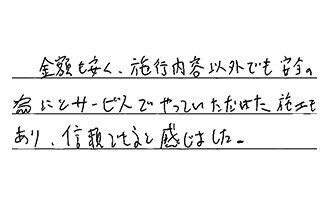 金額も安く、施行内容以外でも安全の
為にとサービスでやっていただけた施工も
あり、信頼できると感じました。